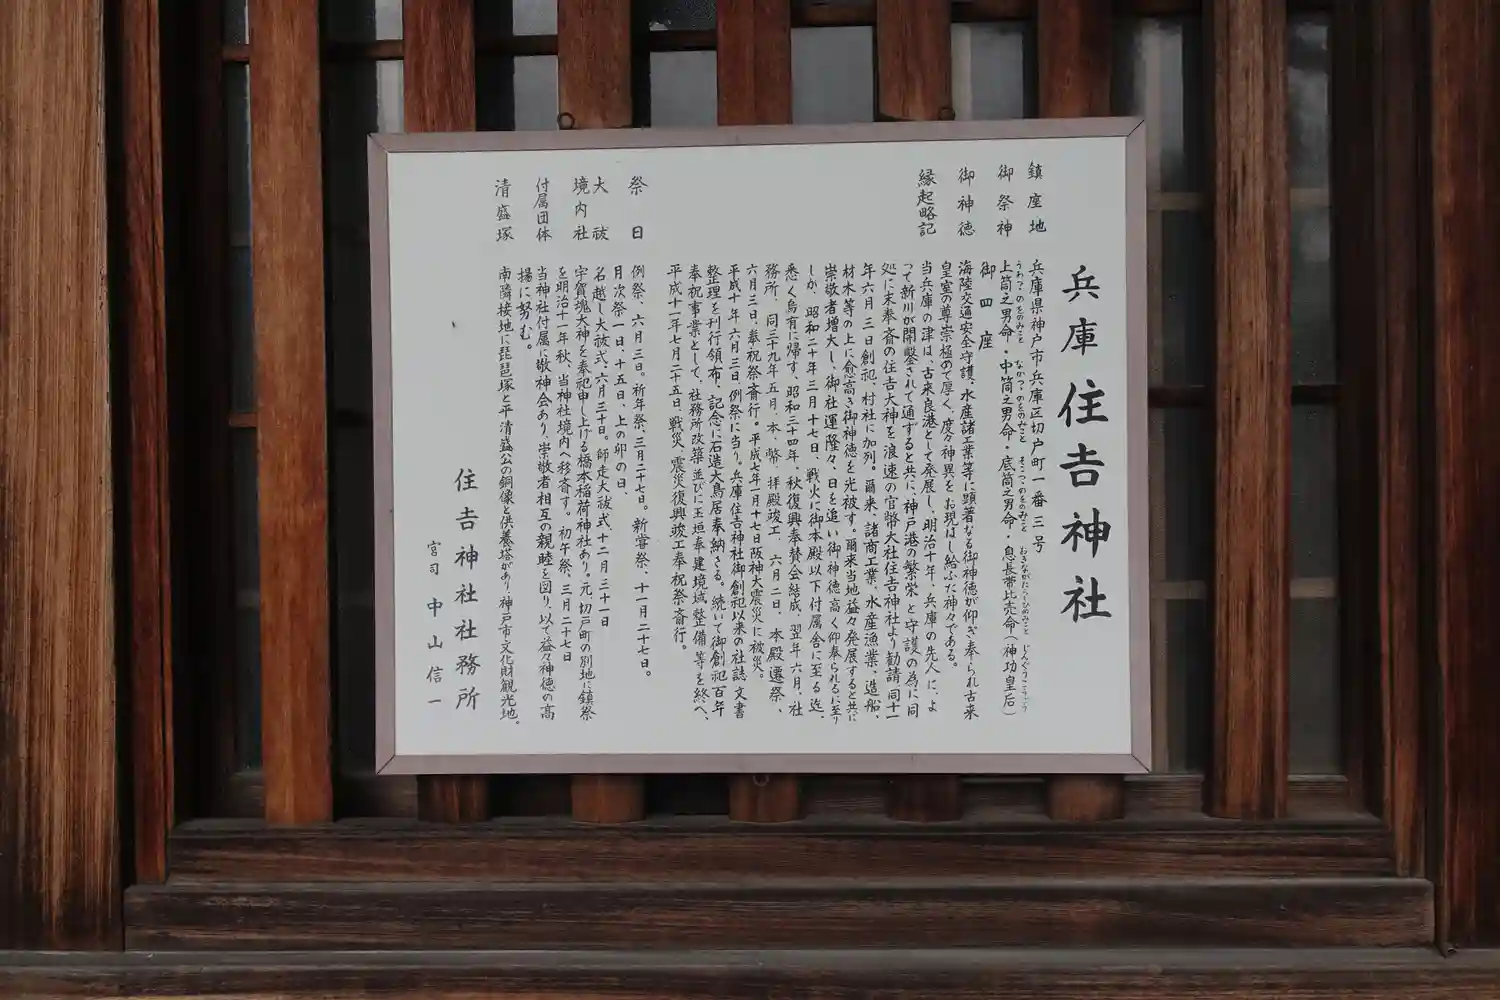 兵庫住吉神社
鎮座地 兵庫県神戸市兵庫区切戸町一番三号
御祭神 上筒之男命・中筒之男命・底筒之男命・息長帯比売命(神功皇后)
うわつつのをのみこと なかつつのをのみこと そこつつのをのみこと おきながたらしひめのみこと じんぐうこうごう
御四座
御神徳 海陸交通安全守護、水産諸工業等に顕著なる御神徳が仰ぎ奉られ古来
皇室の尊崇極めて厚く、度々神異をお現はし給ふた神々である。
縁起略記 当兵庫の津は、古来良港として発展し、明治十年、兵庫の先人によ
って新川が開鑿されて通ずると共に、神戸港の繁栄と守護の為に同
処に末奉斎の住吉大神を浪速の官幣大社住吉神社より勧請同十一
年六月三日創祀、村社に加列。爾来、諸商工業、水産漁業、造船、
材木等の上に愈高き御神徳を光被す。爾来当地益々発展すると共に
崇敬者増大し、御社運隆々、日を追い御神徳高く仰奉られるに至り
しが、昭和二十年三月十七日、戦火に御本殿以下付属舎に至る迄、
悉く烏有に帰す。昭和三十四年、秋復興奉賛会結成、翌年六月、社
務所、同三十九年五月、本、幣、拝殿竣工、六月二日、本殿遷祭、
六月三日、奉祝祭斎行。平成七年一月十七日阪神大震災に被災。
平成十年六月三日、例祭に当り、兵庫住吉神社御創祀以来の社誌文書
整理を刊行領布、記念に石造大鳥居奉納さる。続いて御創祀百年
奉祝事業として、社務所改築並びに玉垣奉建境域整備等を終へ、
平成十一年七月二十五日、戦災、震災復興竣工奉祝祭斎行。
祭日 例祭、六月三日。祈年祭、三月二十七日。新嘗祭、十一月二十七日。
月次祭一日、十五日、上の卯の日、
大祓 名越し大祓式、六月三十日。師走大祓式、十二月三十一日
境内社 宇賀魂大神を奉祀申し上げる橋本稲荷神社あり。元切戸町の別地に鎮祭
を明治十一年秋、当神社境内へ移斎す。初午祭、三月二十七日
付属団体 当神社付属に敬神会あり、崇敬者相互の親睦を図り、以て益々神徳の高
揚に努む。
清盛塚 南隣接地に琵琶塚と平清盛公の銅像と供養塔があり、神戸市文化財観光地。
住吉神社社務所
宮司 中山信一